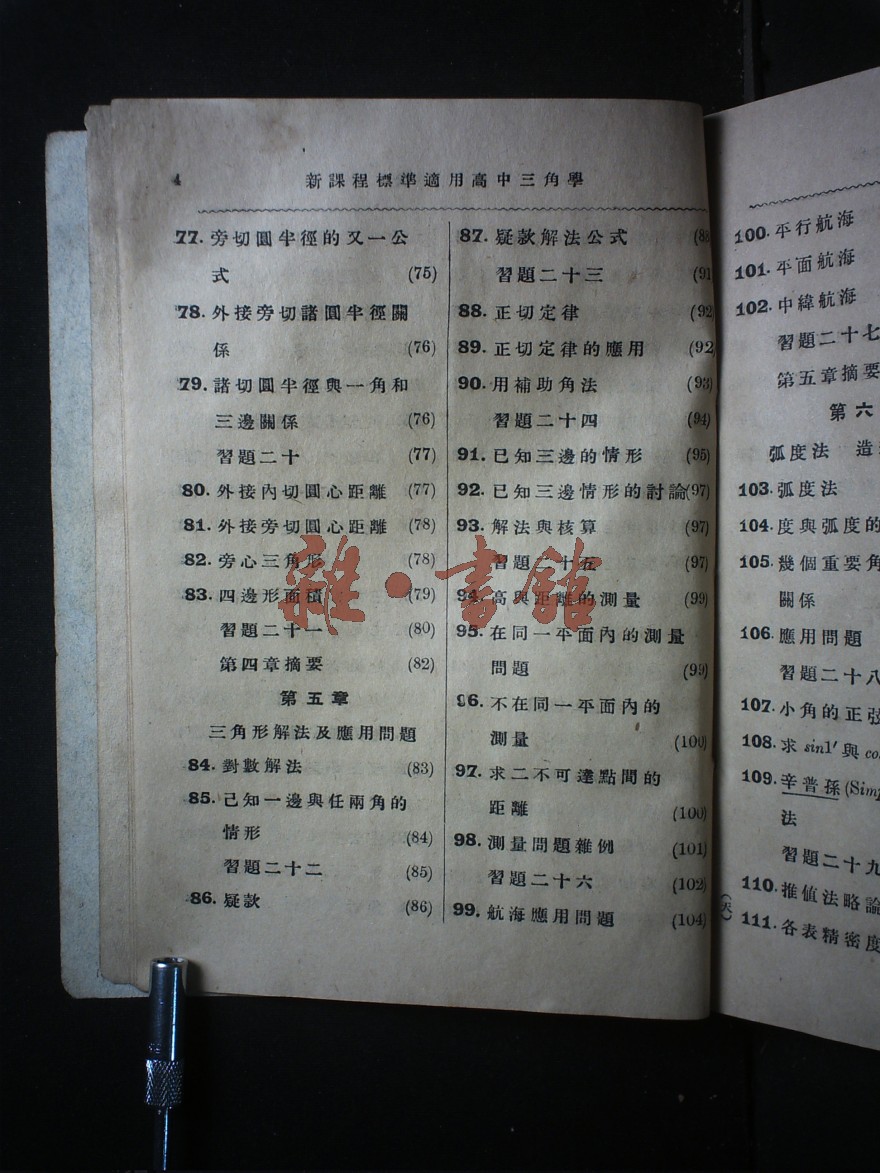 4
新課程標準適用高中三角學
77. 旁切圓半徑的又一公
式 (75)
78. 外接旁切諸圓半徑關
係 (76)
79. 諸切圓半徑與一角和
三邊關係 (76)
習題二十 (77)
80. 外接內切圓心距離 (77)
81. 外接旁切圓心距離 (78)
82. 旁心三角形 (78)
83. 四邊形面積 (79)
習題二十一 (80)
第四章摘要 (82)
第五章
三角形解法及應用問題
84. 對數解法 (83)
85. 已知一邊與任兩角的
情形 (84)
習題二十二 (85)
86. 疑款 (86)
87. 疑款解法公式 (88
習題二十三 (91
88. 正切定律 (92
89. 正切定律的應用 (92
90. 用補助角法 (93)
習題二十四 (94)
91. 已知三邊的情形 (95)
92. 已知三邊情形的討論(97)
93. 解法與核算 (97)
習題二十五 (97)
94. 高與距離的測量 (99)
95. 在同一平面內的測量
問題 (99)
96. 不在同一平面內的
測量 (100)
97. 求二不可達點間的
距離 (100)
98. 測量問題雜例 (101)
習題二十六 (102)
99. 航海應用問題 (104)
雜·書館
100. 平行航海
101. 平面航海
102. 中緯航海
習題二十七
第五章摘要
第六
弧度法 造
103. 弧度法
104. 度與弧度的
105. 幾個重要角
關係
106. 應用問題
習題二十八
107. 小角的正弦
108. 求 sin1′ 與 co
109. 辛普孫(Simp
法
習題二十九
110. 推値法略論
111. 各表精密度